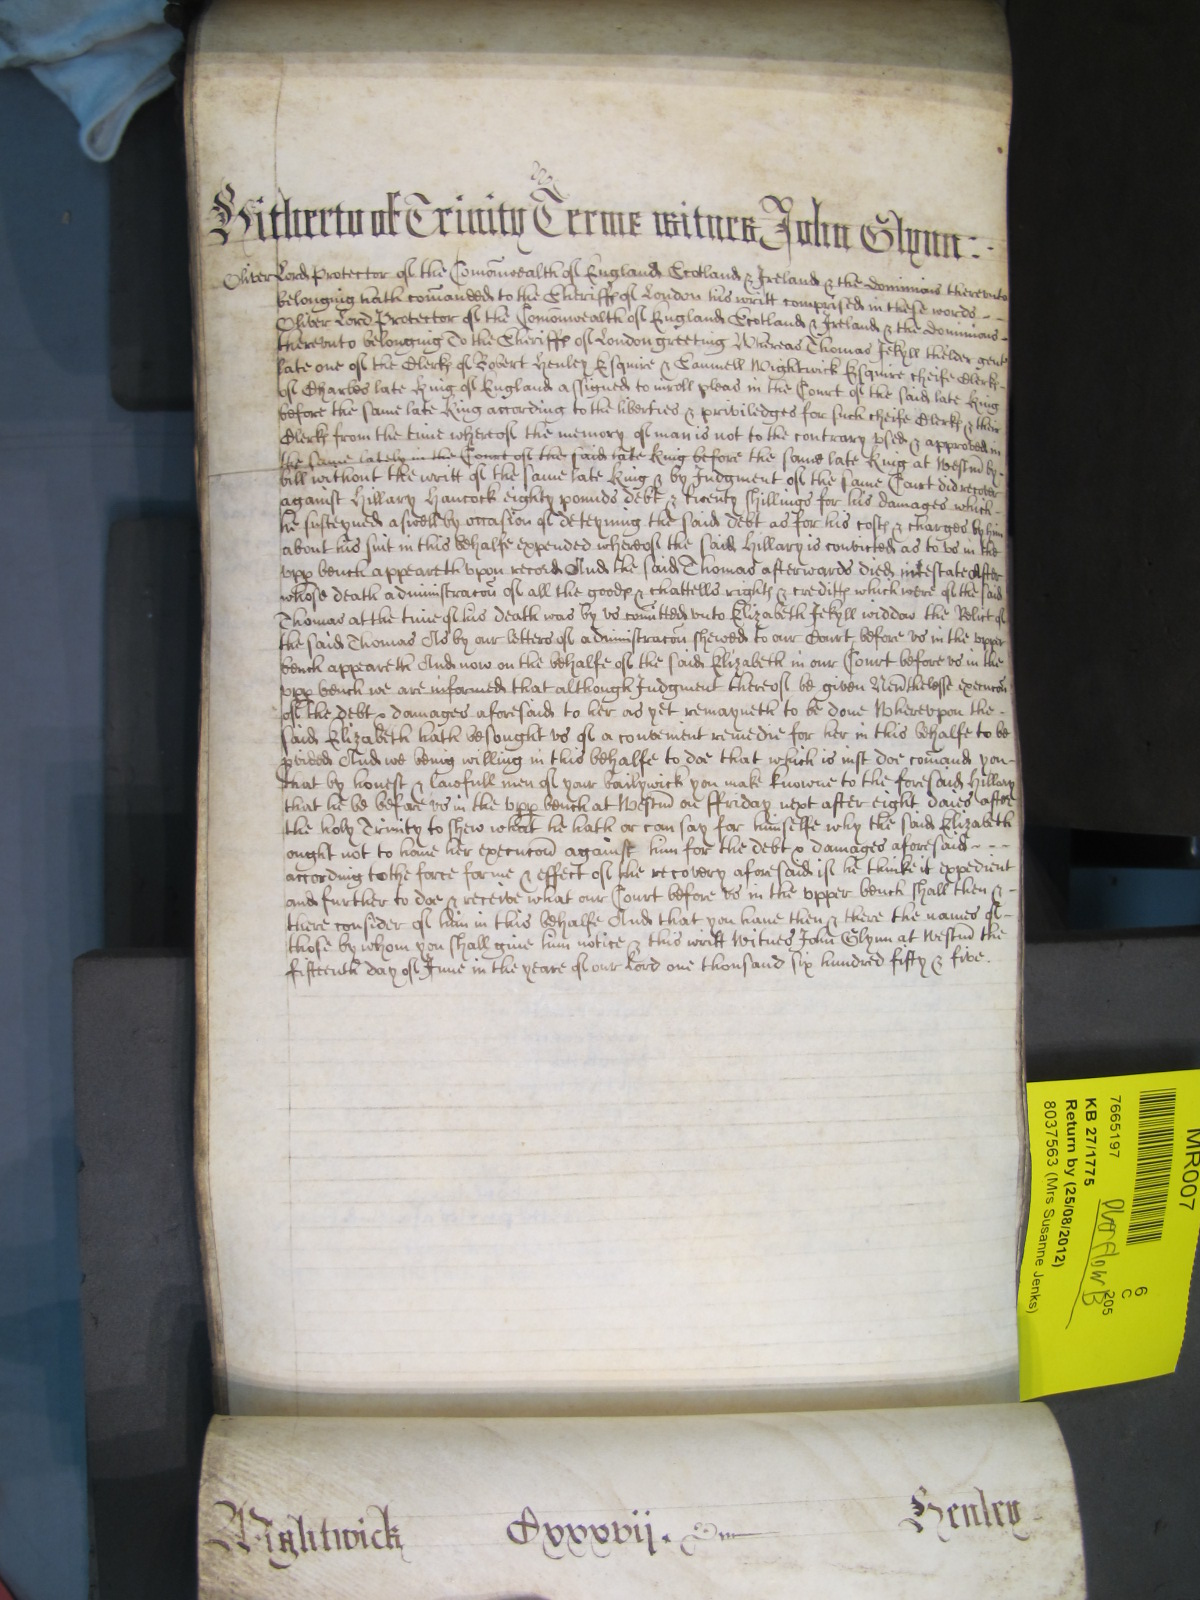 Hitherto of Trinity Terme witnes John Glynn:
Oliver Lord Protector of the Com̄onwealth of England Scotland & Ireland & the Dominions therevnto
belonging hath com̄anded to the Sheriffs of London his writt comprised in these words
Oliver Lord Protector of the Com̄onwealth of England Scotland & Ireland & the Dominions
therevnto belonging To the Sheriffs of London greeting Whereas Thomas Jekyll thelder gent
late one of the Clerks of Robert Henley Esquire & Samuell Wightwick Esquire cheife Clerks
of Charles late King of England assigned to inroll pleas in the Court of the said late King
before the same late King according to the liberties & priviledges for such cheife Clerks & their
Clerks from the time whereof the memory of man is not to the contrary vsed & approved in
the same lately in the Court of the said late King before the same late King at Westm̄ by
bill without the writt of the same late King & by Judgment of the same Court did recover
against Hillary Hancock eighty pounds debt & twenty shillings for his damages which
he susteyned aswell by occasion of deteyning the said debt as for his costs & charges by him
about his suit in this behalfe expended whereof the said Hillary is convicted as to vs in the
vpp bench appeareth vpon record And the said Thomas afterwards died intestate After
whose death administracōn of all the goods & chattells rights & creditts which were of the said
Thomas at the time of his death was by vs com̄itted vnto Elizabeth Jekyll widdow the Relict of
the said Thomas As by our letters of administracōn shewed to our Court before vs in the vpper
bench appeareth And now on the behalfe of the said Elizabeth in our Court before vs in the
vpp bench we are informed that although Judgment thereof be given Nev̄thelesse execucōn
of the debt & damages aforesaid to her as yet remayneth to be done Wherevpon the
said Elizabeth hath besought vs of a convenient remedie for her in this behalfe to be
pvided And we being willing in this behalfe to doe that which is iust doe com̄and you
that by honest & lawfull men of your bailywick you make knowne to the foresaid Hillary
that he be before vs in the vpp bench at Westm̄ on ffriday next after eight daies after
the holy Trinity to shew what he hath or can say for himselfe why the said Elizabeth
ought not to haue her execucōn against him for the debt & damages aforesaid
according to the force forme & effect of the recovery aforesaid if he thinke it expedient
and further to doe & receive what our Court before vs in the vpper bench shall then &
there consider of him in this behalfe And that you haue then & there the names of
those by whom you shall giue him notice & this writt Witnes John Glynn at Westm̄ the
fifteenth day of June in the yeare of our Lord one thousand six hundred fifty & five.
Wightwick Cxxxvij. Henley
MR007
6
C
205
7665197
Overflow B
KB 27/1775
Return by (25/08/2012)
8037563 (Mrs Susanne Jenks)